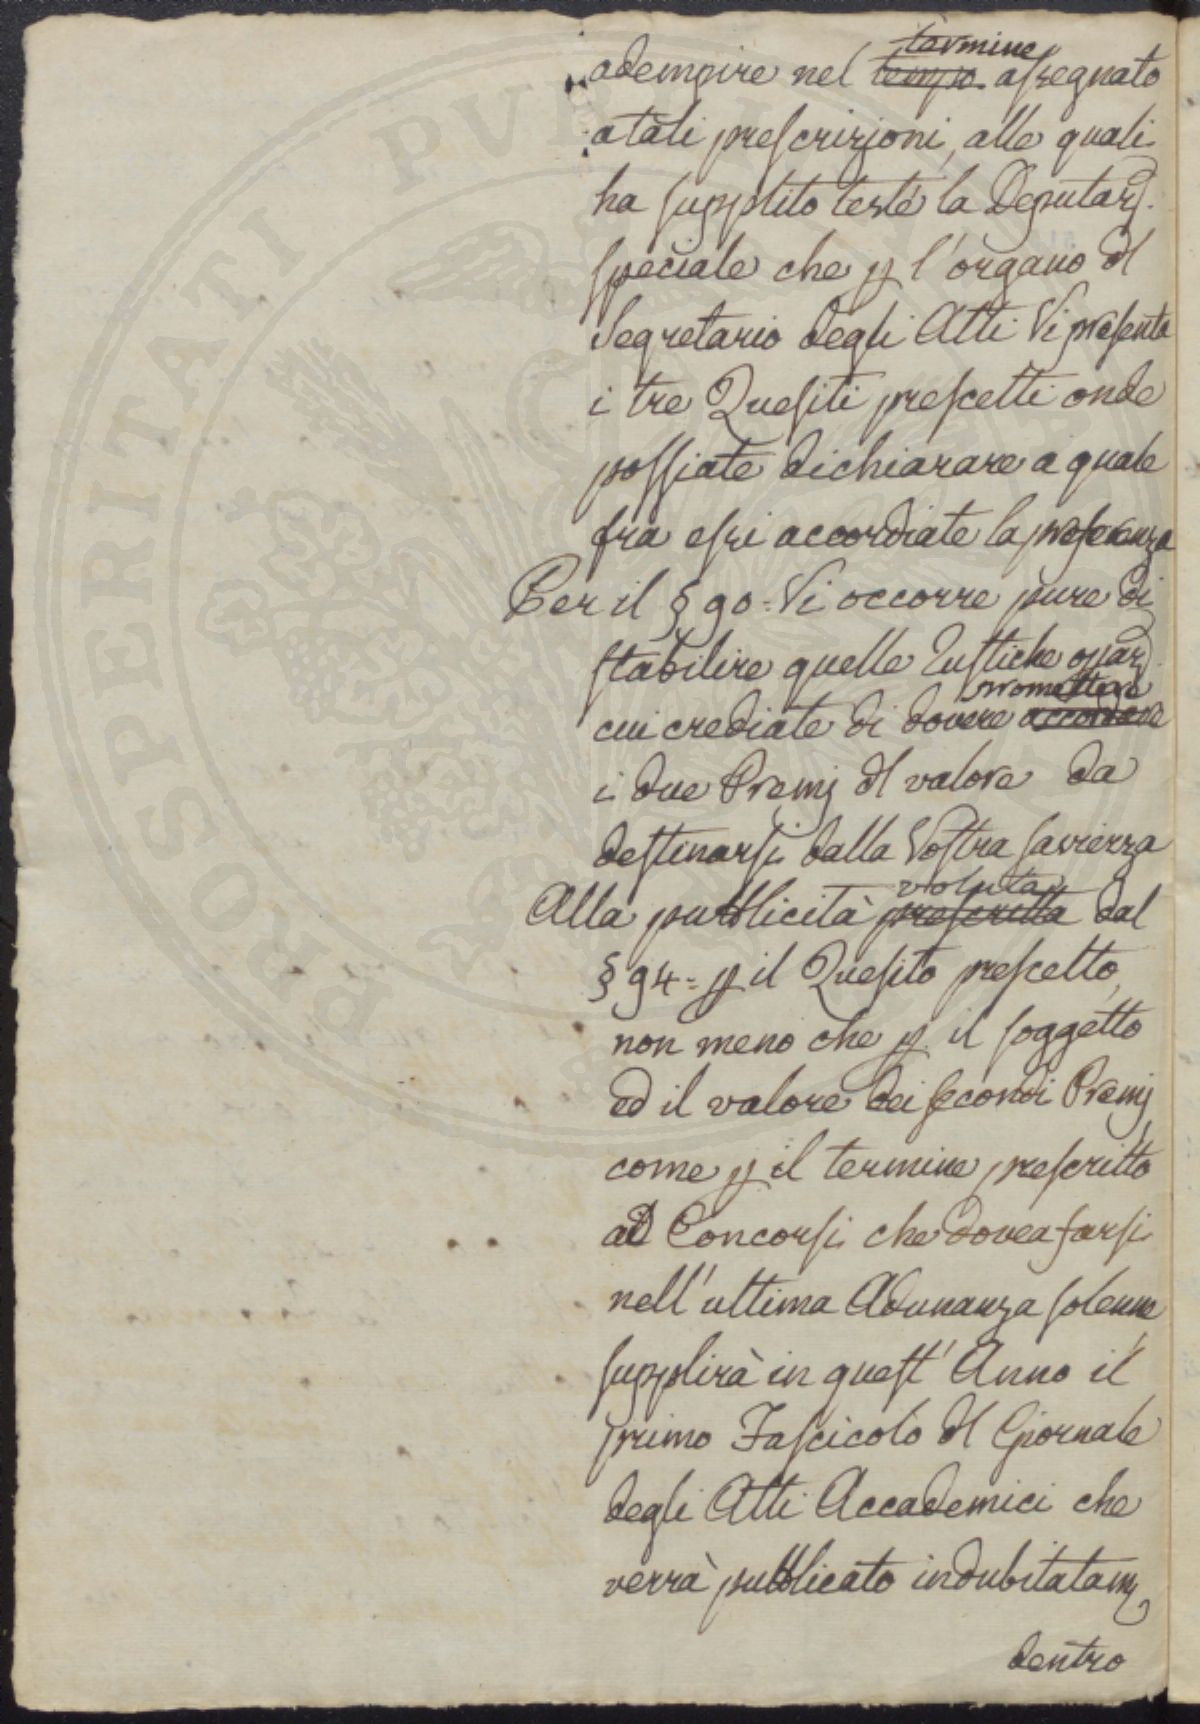 termine
adempire nel tempo assegnato
a tali prescrizioni, alle quali
ha supplito testé la Deputaz.
speciale che p l'organo del
Segretario degli Atti Vi presenta
i tre Quesiti prescelti onde
possiate dichiarare a quale
fra essi accordiate la preferenza
Per il § 90 = Vi occorre pure di
stabilire quelle rustiche opaz
promettere
cui crediate di dovere accordare
i due Premj del valore da
destinarsi dalla Vostra saviezza
voluta
Alla pubblicità prescritta dal
§ 94 = p il Quesito prescelto,
non meno che p il soggetto
ed il valore dei secondi Premj
come p il termine prescritto
al Concorsi che dovea farsi
nell'ultima Adunanza solenne,
supplirà in quest'Anno il
primo Fascicolo del Giornale
degli Atti Accademici che
verrà pubblicato indubitatam
dentro
PROSPERITATI PUBLICAE